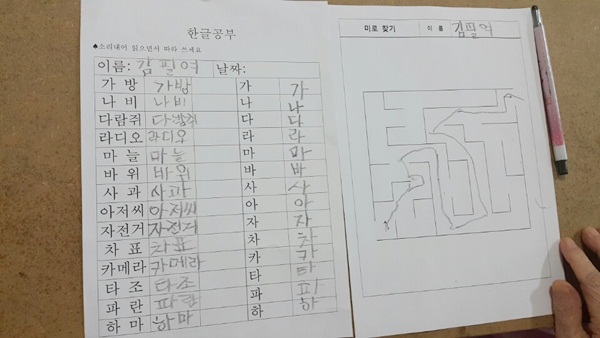 한글공부
♠소리내어 읽으면서 따라 쓰세요
이름: 김필여 날짜:
가 방 가방 가 가
나 비 나비 나 나
다람쥐 다람쥐 다 다
라디오 라디오 라 라
마 늘 마늘 마 마
바 위 바위 바 바
사 과 사과 사 사
아저씨 아저씨 아 아
자전거 자전거 자 자
차 표 차표 차 차
카메라 카메라 카 카
타 조 타조 타 타
파 란 파란 파 파
하 마 하마 하 하
미로 찾기 이 름 김필여